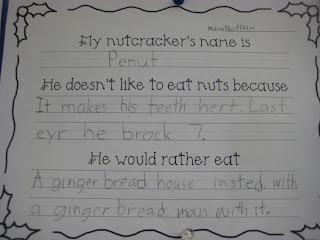 Name Nathan
My nutcracker's name is
Penut
He doesn't like to eat nuts because
It makes his teeth hert. Last
eyr he brock 7.
He would rather eat
A ginger bread house insted with
a ginger bread man with it.